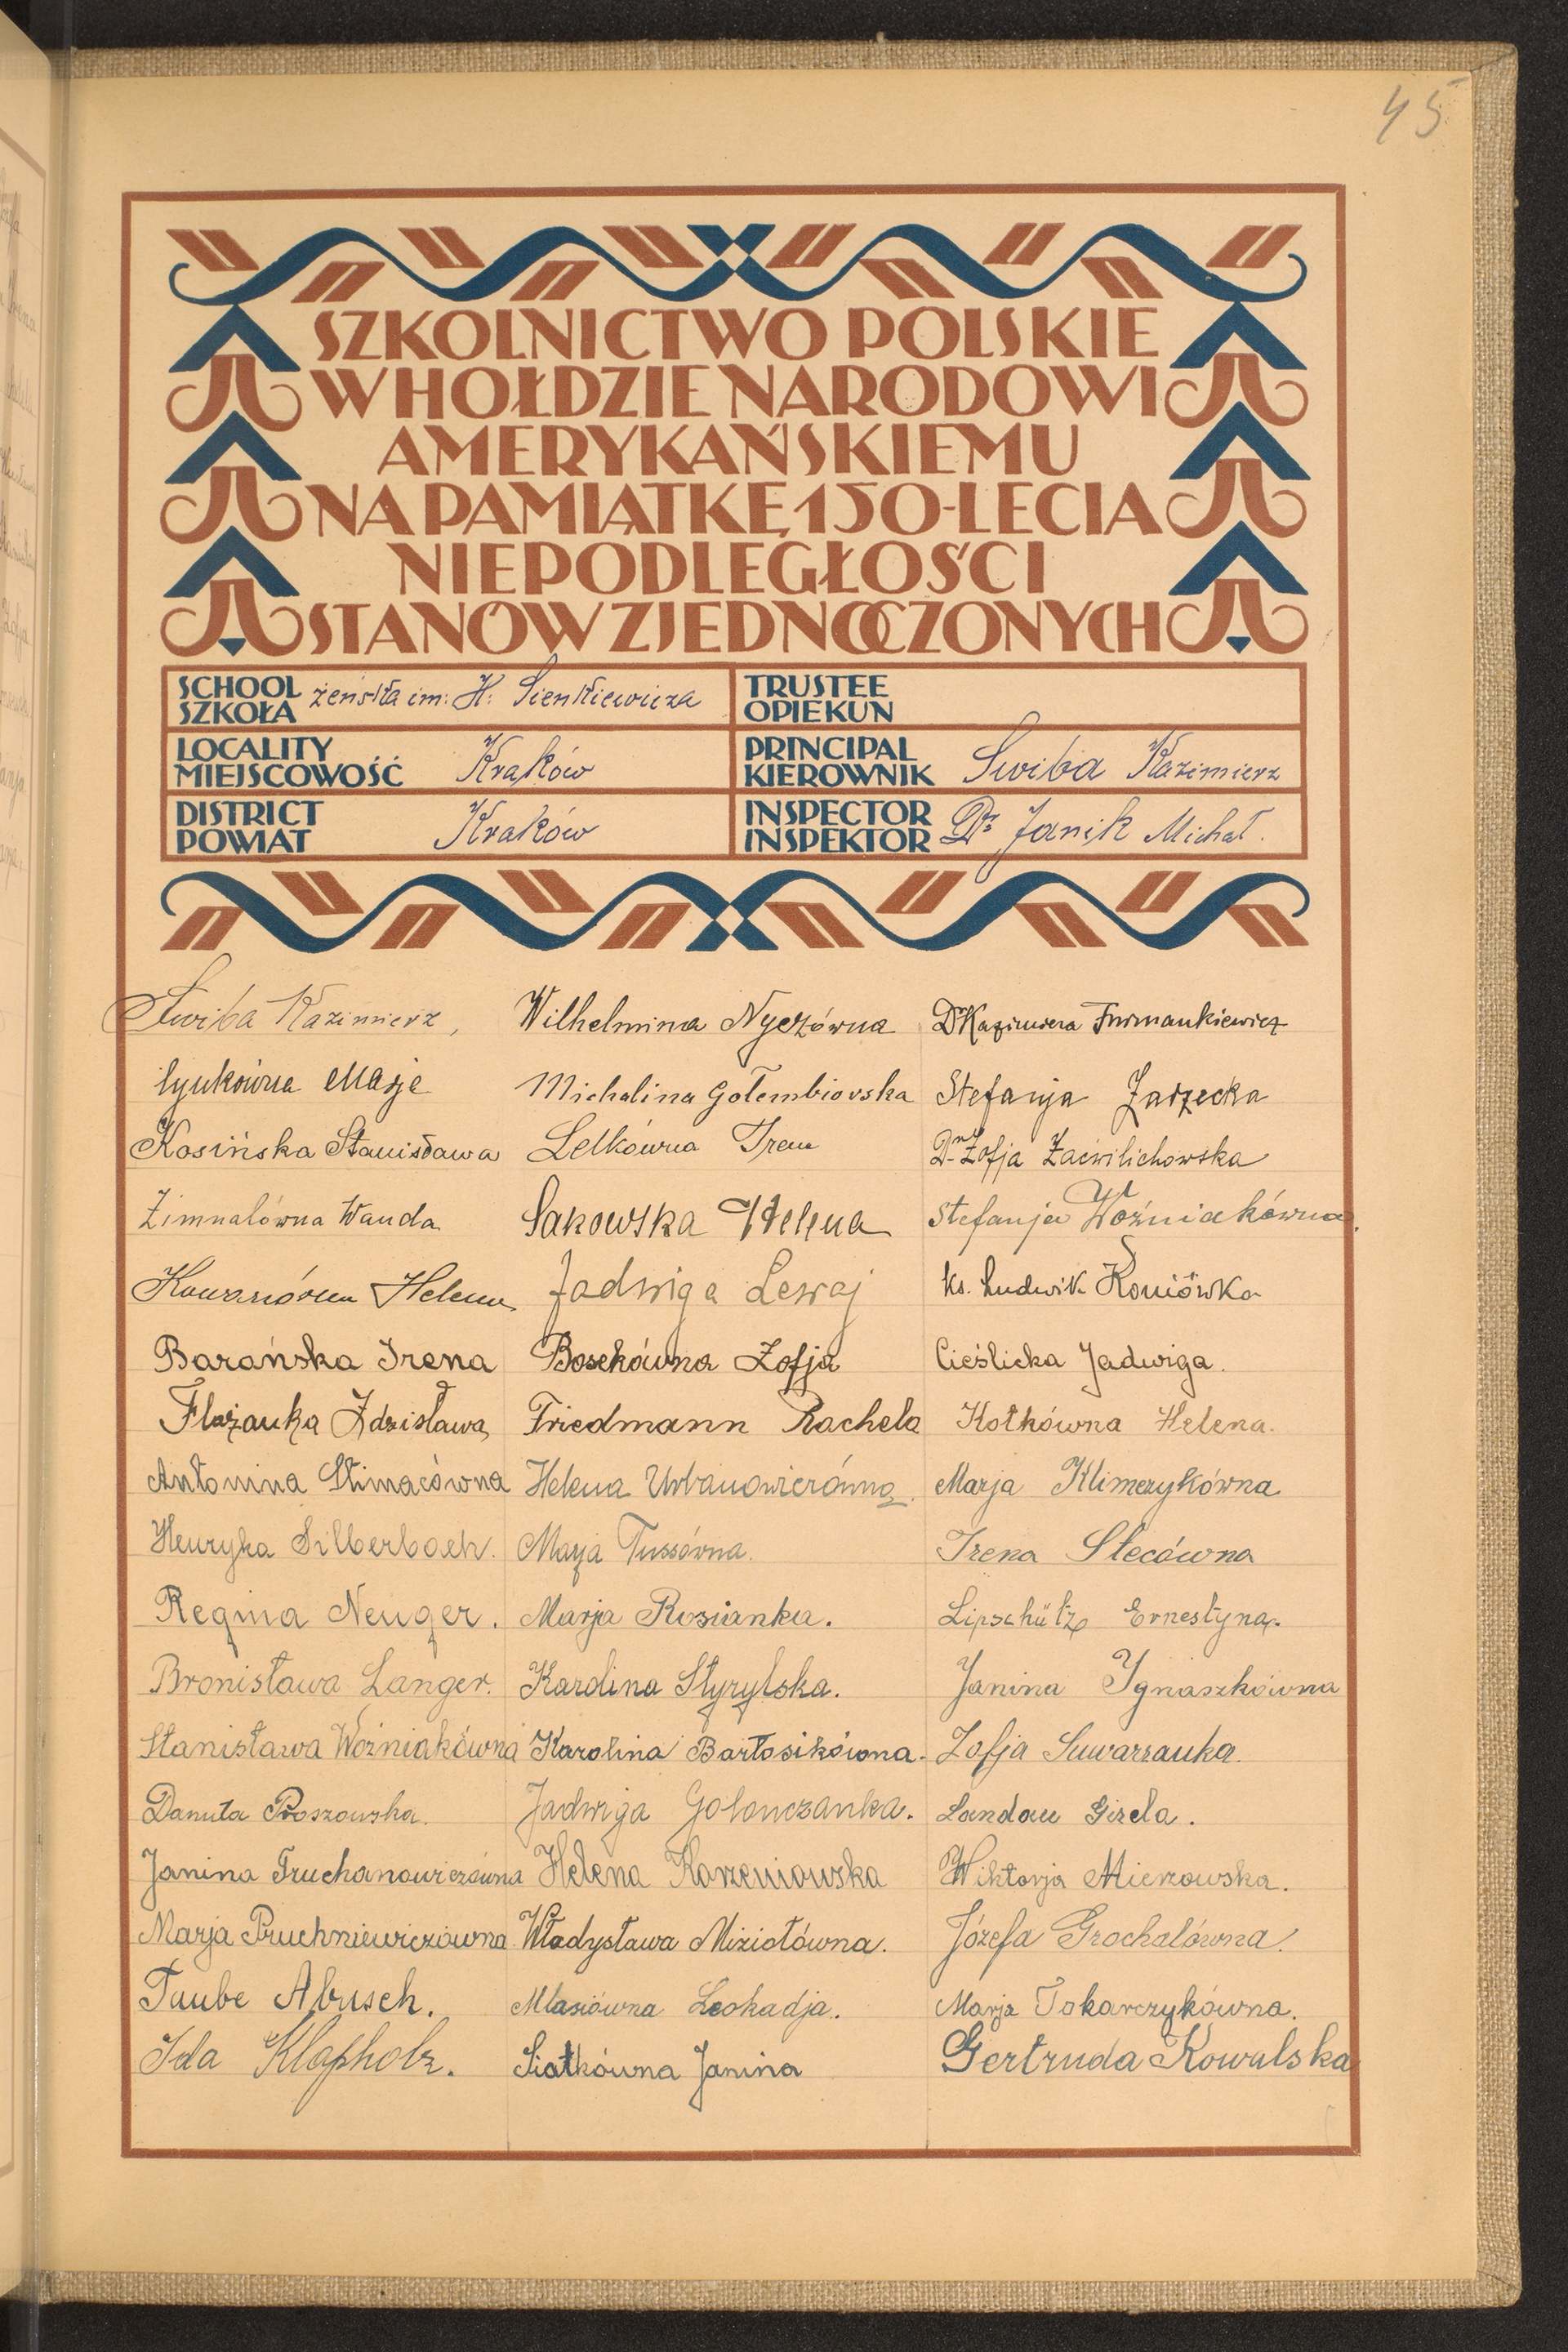 45
SZKOLNICTWO POLSKIE
W HOŁDZIE NARODOWI
AMERYKAŃSKIEMU
NA PAMIĄTKĘ 150-LECIA
NIEPODLEGŁOŚCI
STANÓW ZJEDNOCZONYCH
SCHOOL
SZKOŁA
żeńska im: H. Sienkiewicza
TRUSTEE
OPIEKUN
LOCALITY
MIEJSCOWOŚĆ
Kraków
PRINCIPAL
KIEROWNIK
Swiba Kazimierz
DISTRICT
POWIAT
Kraków
INSPECTOR
INSPEKTOR
Dr Janik Michał.
Swiba Kazimierz,
Marje
Kosińska Stanisława
Zimnalówna Wanda
Helena
Barańska Irena
Zdzisława
Antonina Slimacówna
Henryka Silberbach.
Regina Neuger.
Bronisława Langer.
Stanisława Woźniakówna
Danuta Proszowska.
Janina Truchanowiczówna
Marja Pruchniewiczówna
Taube Abusch.
Ida Klapholz.
Wilhelmina Nyczówna
Michalina Gołembiovska
Lelkówna Irena
Sakowska Helena
Jadwiga Lewaj
Bosekówna Zofja
Friedmann Rachela
Helena Urbanowiczówna.
Marja Tussówna.
Marja Rosianka.
Karolina Styrylska.
Karolina Bartosikówna.
Jadwiga Golonczanka.
Helena Korzeniowska
Władysława Miziołówna.
Mlasiówna Leokadja.
Siatkówna Janina
Dr Kazimiera Furmankiewicz
Stefanja Zarzecka
Dr Zofja Zaćwilichowska
Stefanja Woźniakówna.
ks. Ludwik Koniówka
Cieślicka Jadwiga.
Kotkówna Helena.
Marja Klimczykówna
Irena Stecówna
Lipschütz Ernestyna.
Janina Ignaszkówna
Zofja Suwarzanka.
Landau Gizela.
Wiktorja Mierzowska.
Józefa Grochalówna.
Marja Tokarczykówna.
Gertruda Kowalska